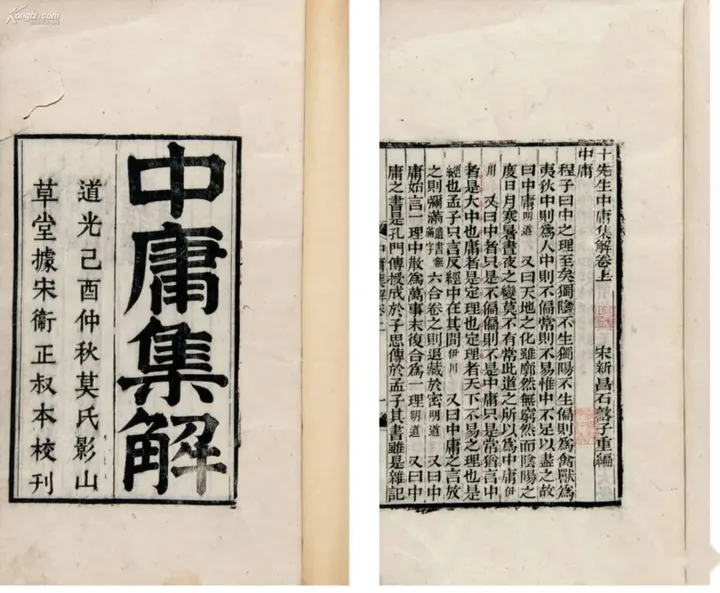 Kongfz.com
中庸集解
道光己酉仲秋莫氏影山
草堂據宋衞正叔本校刊
十先生中庸集解卷上
宋新昌石子重編
中庸
程子曰中之理至矣獨陰不生獨陽不生偏則爲禽獸爲
夷狄中則爲人中則不偏常則不易惟中不足以盡之故
曰中庸明道 又曰天地之化雖廓然無窮然而陰陽之
度日月寒暑晝夜之變莫不有常此道之所以爲中庸伊
川 又曰中者只是不偏偏則不是中庸只是常猶言中
者是大中也庸者是定理也定理者天下不易之理也是
經也孟子只言反經中在其間伊川 又曰中庸之言放
之則彌滿遺書無滿字六合卷之則退藏於密明道 又曰中
庸始言一理中散爲萬事末復合爲一理明道 又曰中
庸之書是孔門傳授成於子思傳於孟子其書雖是雜記
中庸集解卷上